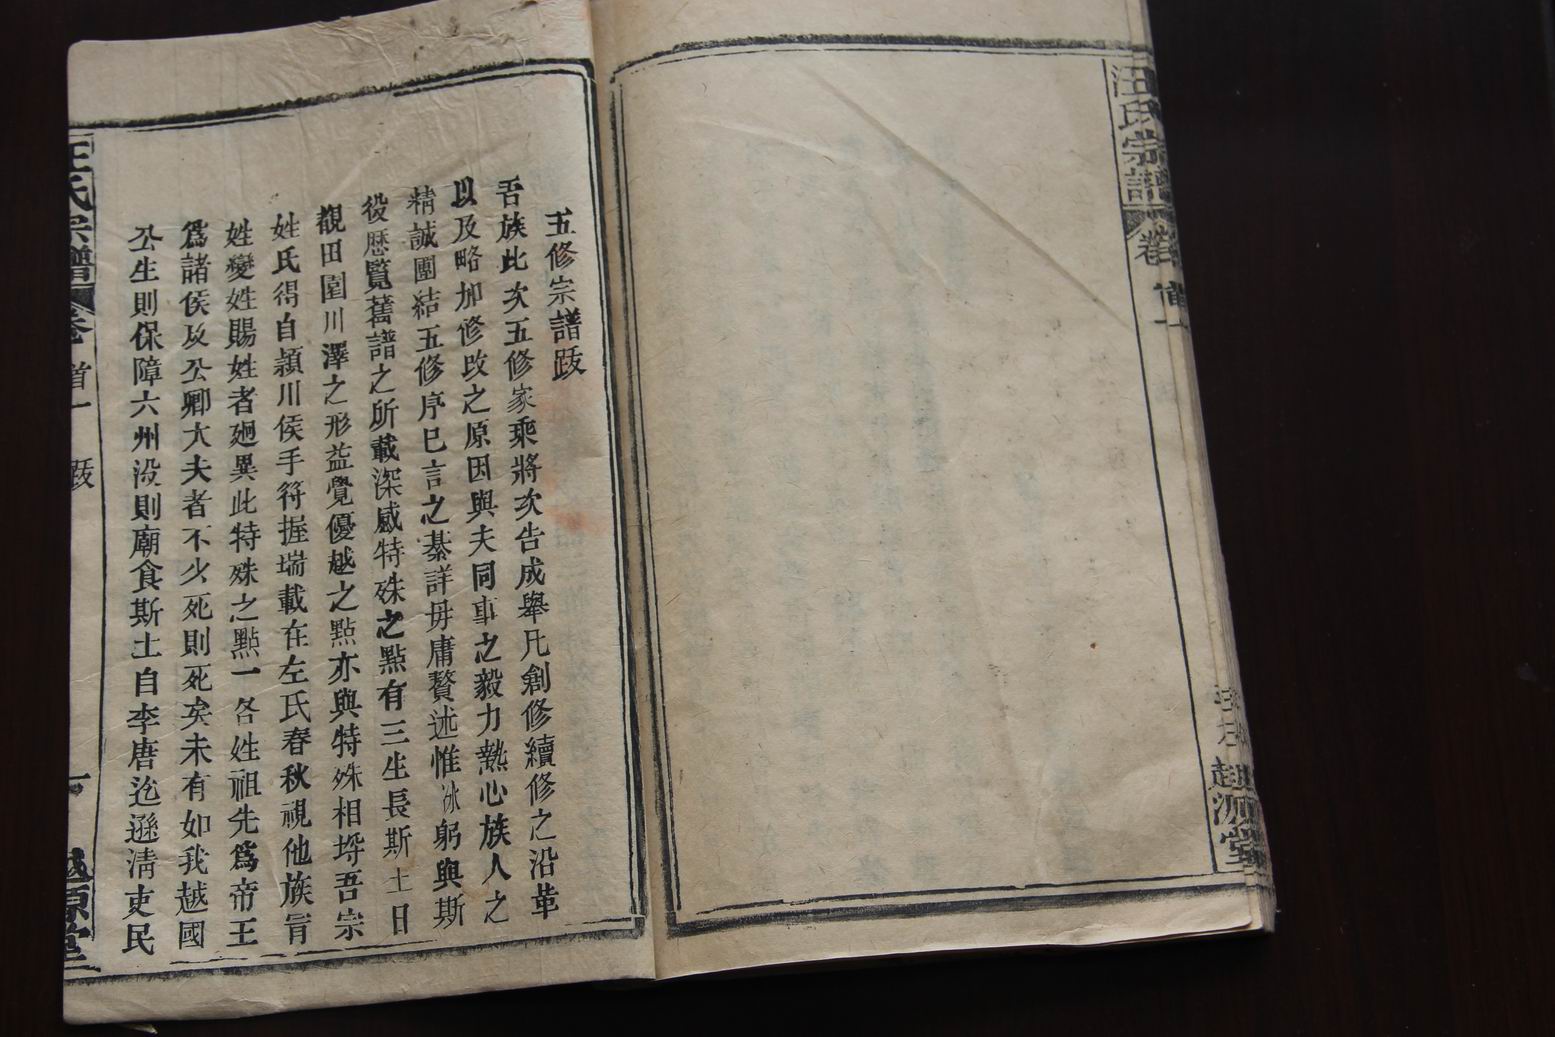 汪氏宗譜
卷首
越源堂
五修宗譜跋
吾族此次五修家乘將次告成舉凡創修續修之沿革
以及略加修改之原因與夫同事之毅力熱心族人之
精誠團結五修序已言之綦詳毋庸贅述惟冰躬與斯
役歷覽舊譜之所載深感特殊之點有三生長斯土日
觀田園川澤之形益覺優越之點亦與特殊相埒吾宗
姓氏得自頴川侯手符握瑞載在左氏春秋視他族冐
姓變姓賜姓者廻異此特殊之點一各姓祖先爲帝王
爲諸侯及公卿大夫者不少死則死矣未有如我越國
公生則保障六州沒則廟食斯土自李唐迄遜淸吏民
汪氏宗譜
卷首一
跋
一
越源堂